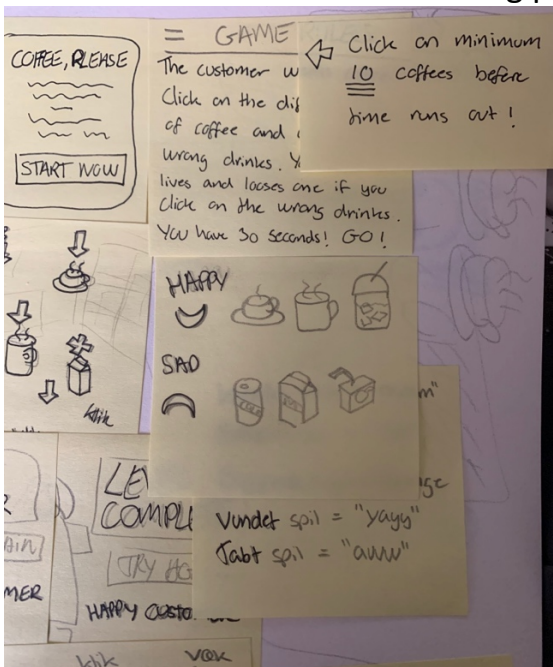 COFFEE, PLEASE
START NOW
= GAME
The customer w
Click on the dif
of coffee and
wrong drinks. Y
lives and looses one if you
click on the wrong drinks.
You have 30 seconds! GO!
Click on minimum
10 coffees before
time runs out!
HAPPY
SAD
klik
LEV
COMPL
TRY AG
HAPPY CUSTO
AIN
MER
m"
Vundet spil = "yayy"
Tabt spil = "aww"
klik